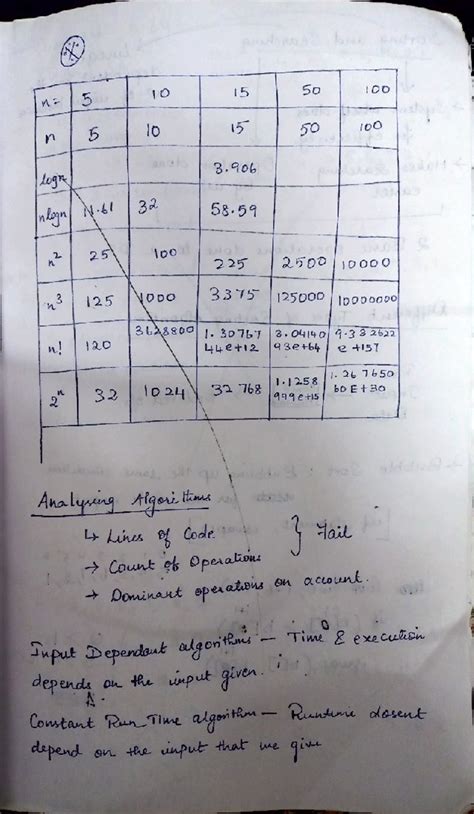 n= 5 10 15 50 100
n 5 10 15 50 100
logn 3.906
nlogn 11.61 32 58.59
n² 25 100 225 2500 10000
n³ 125 1000 3375 125000 10000000
n! 120 3628800 1.30767 3.04140 9.332622
44e+12 93e+64 e+157
2ⁿ 32 1024 32768 1.1258 1.267650
999e+15 60E+30
Analysing Algorithms
↳ Lines of Code
→ Count of Operations } Fail
→ Dominant operations on account.
Input Dependant algorithms — Time & execution
depends on the input given.
Constant Run Time algorithm — Runtime dosent
depend on the input that we give